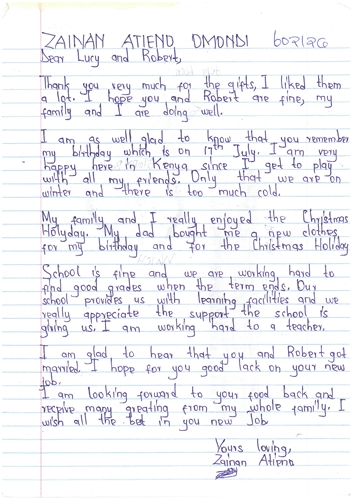 ZAINAN ATIENO OMONDI 602126
Dear Lucy and Robert,
Thank you very much for the gifts, I liked them
a lot. I hope you and Robert are fine, my
family and I are doing well.
I am as well glad to know that you remember
my birthday which is on 17th July. I am very
happy here in Kenya since I get to play
with all my friends. Only that we are on
winter and there is too much cold.
My family and I really enjoyed the Christmas
Holyday. My dad bought me a new clothes
for my birthday and for the Christmas Holiday
School is fine and we are working hard to
find good grades when the term ends. Our
school provides us with learning facilities and we
really appreciate the support the school is
giving us. I am working hard to a teacher.
I am glad to hear that you and Robert got
married. I hope for you good lack on your new
job.
I am looking forward to your food back and
receive many greating from my whole family. I
wish all the bet in you new job
Yours loving,
Zainan Atieno